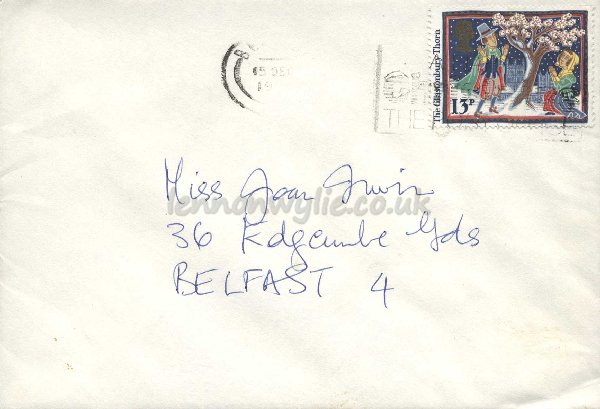 The Glastonbury Thorn
13P
15 DEC
THE
Miss Joan Irwin
lennonwylie.co.uk
36 Edgcumbe Gds
BELFAST 4